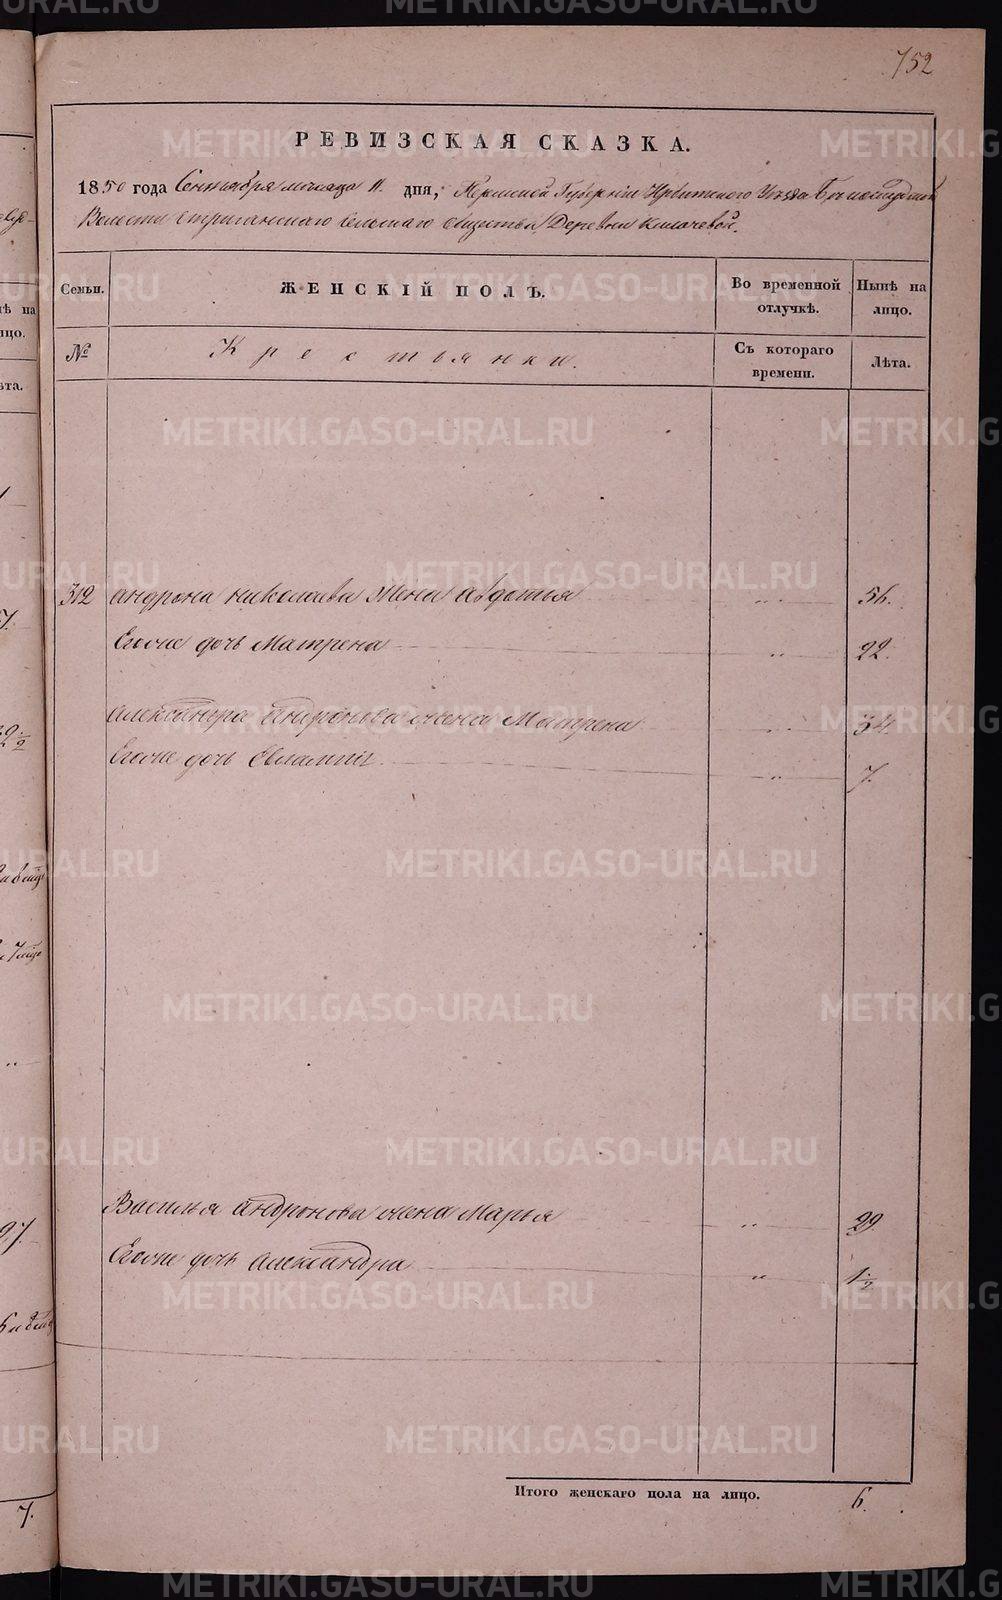 752
РЕВИЗСКАЯ СКАЗКА.
1850 года Сентября месяца 11. дня, Пермской Губерніи Ирбитскаго Уѣзда
Волости Стриганскаго Сельскаго общества, Деревни Ключевой.
Семьи. ЖЕНСКІЙ ПОЛЪ. Во временной отлучкѣ. Нынѣ на лицо.
№ Крестьянки. Съ котораго времени. Лѣта.
312 Андрона Николаева жена Авдотья „ 56.
Егоже дочь Матрена „ 22.
Александра Андронова жена Матрена „ 34.
Егоже дочь Евлампія „ 7.
Василья Андронова жена Марья „ 29
Егоже дочь Александра „ 1 1/2
Итого женскаго пола на лицо. 6.
7.
METRIKI.GASO-URAL.RU